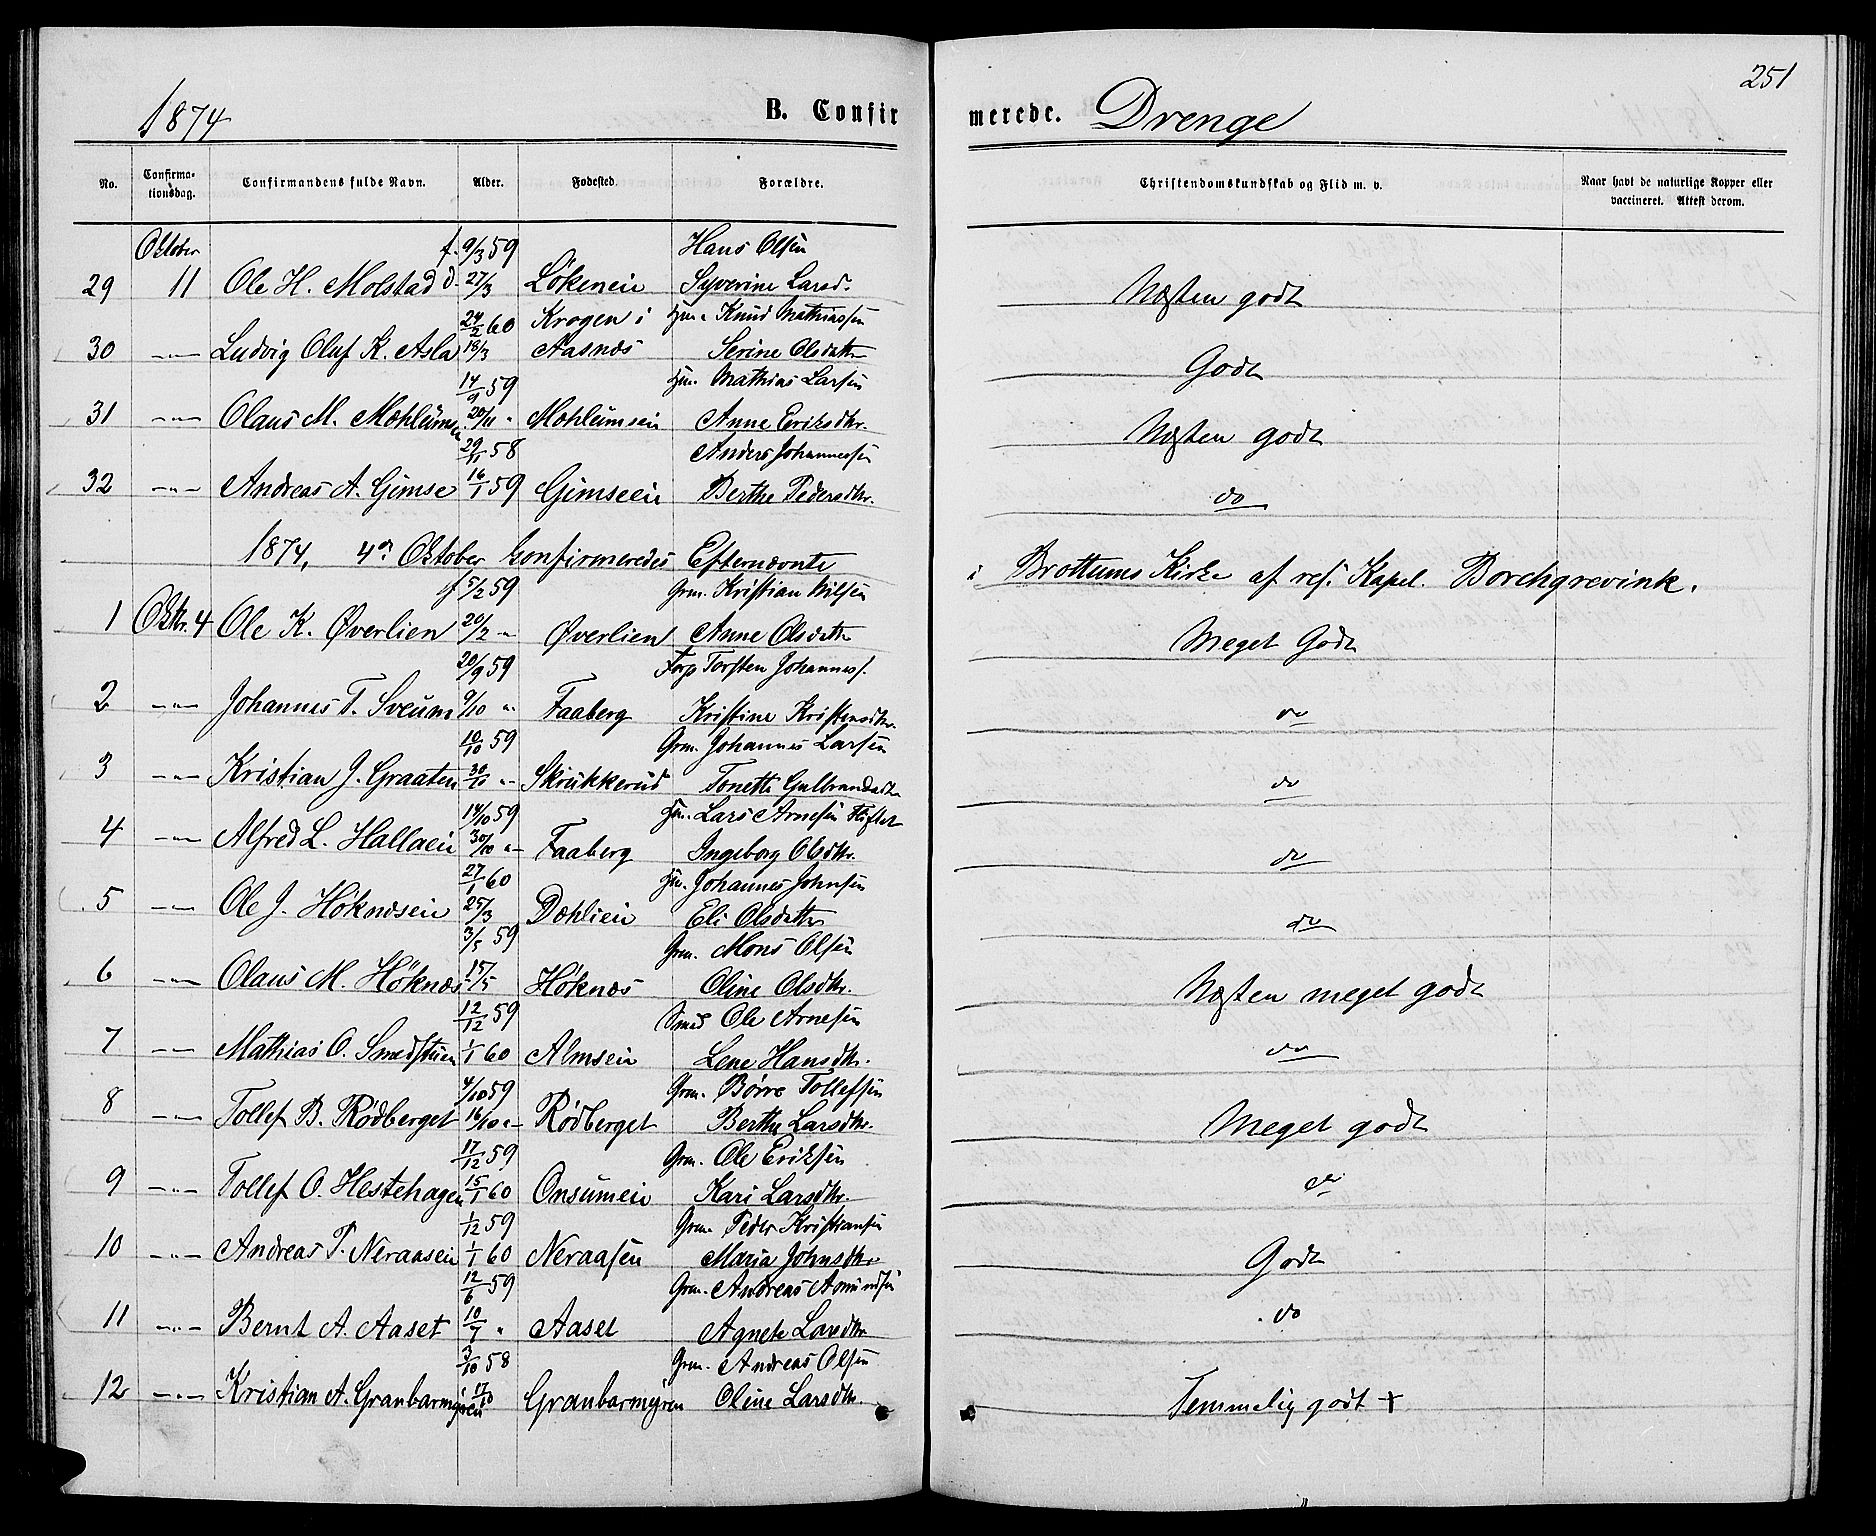 251
1874 B. Confirmerede. Drenge
No. Confirmationsdag. Confirmandens fulde Navn. Alder. Fødested. Forældre. Christendomskundskab og Flid m. v. Naar havt de naturlige Kopper eller vaccineret. Attest derom.
Oktober f. 9/3 59 Hans Olsen
29 11 Ole H. Molstad d. 27/3 Lökeneie Syverine Larsd. Næsten godt
24/2 60 Krogen i Hm. Knud Mathiassen
30 —"— Ludvig Oluf K. Asla 18/3 Aasnæs Serine Olsdatter Godt
14/9 59 Hm. Mathias Larsen
31 —"— Olaus M. Mæhlumseie 20/11 " Mæhlumseie Anne Eriksdtr. Næsten godt
29/11 58 Anders Johannessen
32 —"— Andreas A. Gimse 16/1 59 Gimseeie Berthe Pedersdtr. do
1874, 4de Oktober konfirmeredes Efternævnte i Brøttums Kirke af res. Kapel. Borchgrevink.
f 5/2 59 Grm. Kristian Nilsen
1 Oktr. 4 Ole K. Øverlien 20/2 " Øverlien Anne Olsdatter Meget Godt
20/9 59 Forp Torsten Johanness.
2 —"— Johannes T. Sveum 9/10 " Faaberg Kristine Kristensdtr. do
10/10 59 Grm. Johannes Larsen
3 —"— Kristian J. Graaten 30/10 " Skrukkerud Tonette Gulbrandsdtr do
14/10 59 Hm. Lars Arnesen
4 —"— Alfred L. Hallaeie 30/10 " Faaberg Ingeborg Olsdtr. do
27/1 60 Hm. Johannes Johnsen
5 —"— Ole J. Höknæseie 25/3 Dæhlieie Eli Olsdatter do
3/5 59 Grm. Mons Olsen
6 —"— Olaus M. Höknæs 15/5 Höknæs Oline Olsdtr. Næsten meget godt
12/12 59 Smed Ole Arnesen
7 —"— Mathias O. Smedstuen 1/1 60 Almseie Lene Hansdtr. do
4/10 59 Grm. Børre Tollefsen
8 —"— Tollef B. Rødberget 16/10 " Rødberget Berthe Larsdtr. Meget godt
17/12 59 Grm. Ole Eriksen
9 —"— Tollef O. Hestehagen 15/1 60 Onsumeie Kari Larsdtr. do
1/12 59 Grm. Peder Kristiansen
10 —"— Andreas P. Neraasen 1/1 60 Neraasen Maria Johnsdtr. Godt
12/6 59 Grm. Andreas Amundsen
11 —"— Bernt A. Aaset 10/7 " Aaset Agnete Larsdtr. do
3/10 58 Grm. Andreas Olsen
12 —"— Kristian A. Granbarmyren 17/10 Granbarmyren Oline Larsdtr. Temmelig godt +